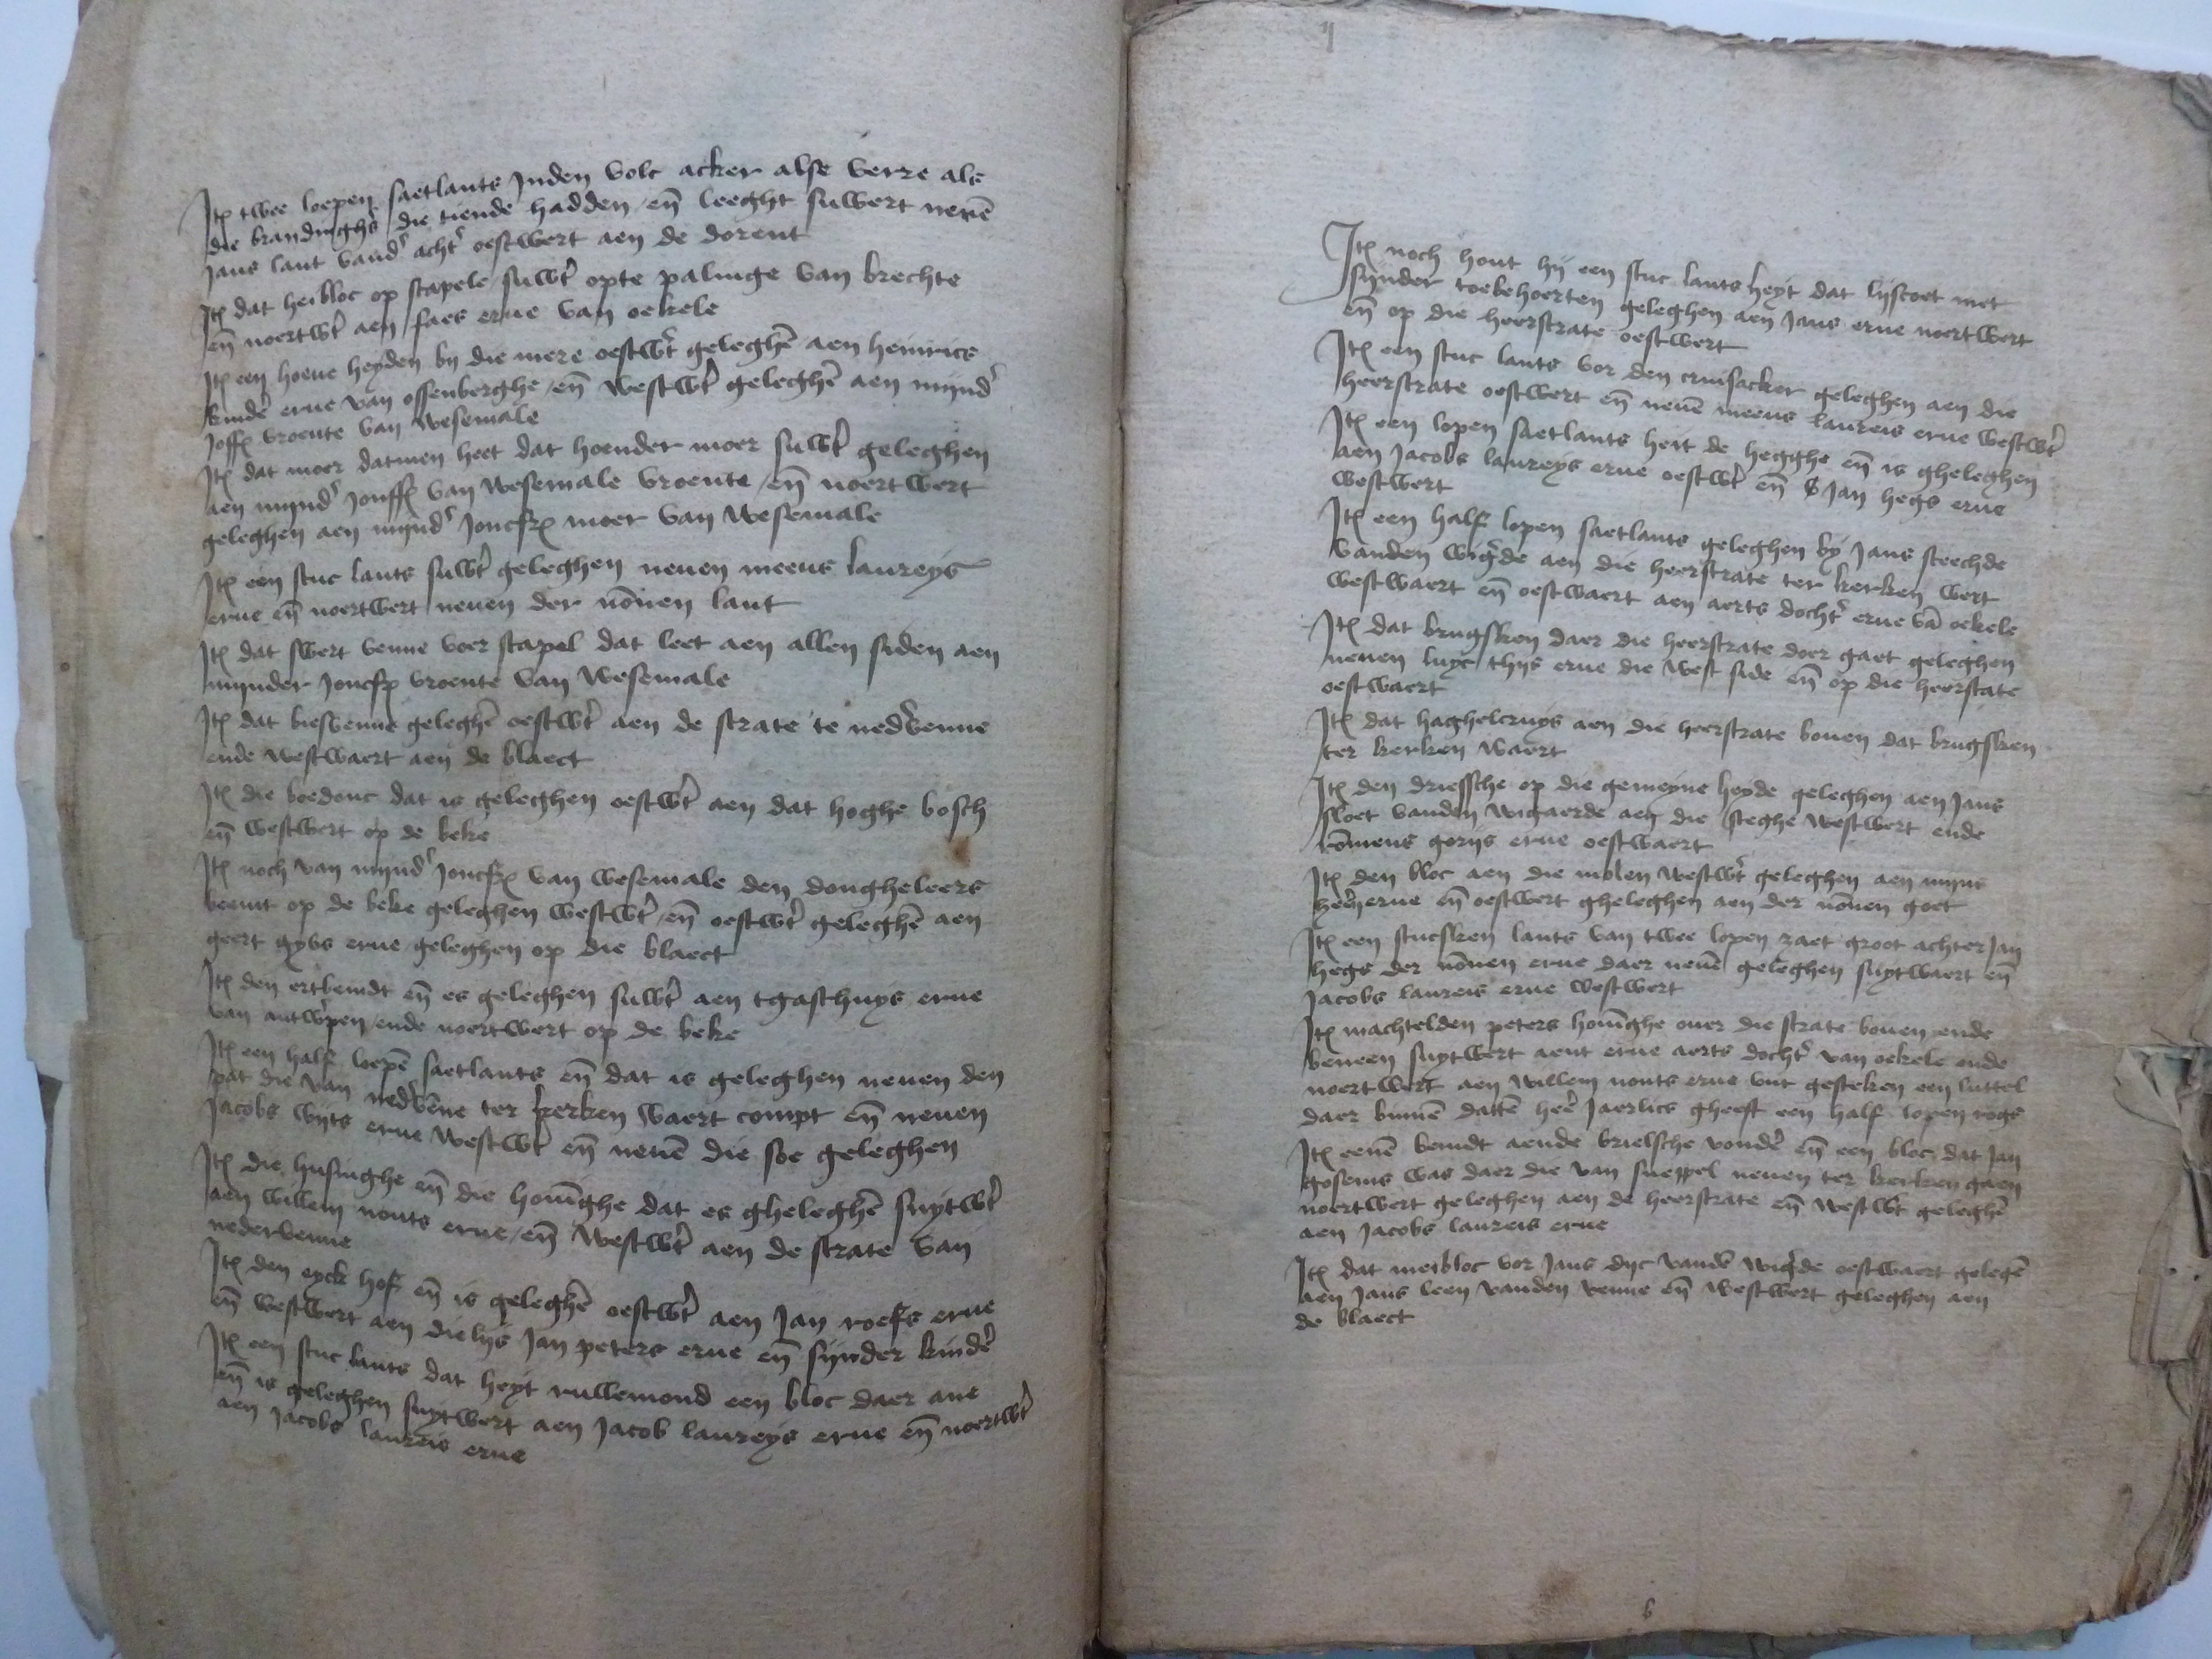 Itē twee loepen saetlants Inden volc acker alse verre als
die brandinghs die tiende hadden en̄ leeght suwert neuē
Jans lant vand' acht' oestwert aen de dorent
Itē dat heibloc op stapele suwt' opte palinge van brechte
en̄ noertwt' aen faes erue van oekele
Itē een hoeue heyden by die mere oestwt' geleghē aen heinrics
kinder' erue van ossenberghe en̄ westwt' geleghē aen mijnd'
Joffrē vroente van wesemale
Itē dat moer datmen heet dat hoender moer suwt' geleghen
aen mijnd' Jonffrē van wesemale vroente en̄ noertwert
geleghen aen mijnd' Joncfrē moer van wesemale
Itē een stuc lants suwt' geleghen neuen meeus laureys
erue en̄ noertwert neuen der nōnen lant
Itē dat swert venne voer stapel dat leet aen allen siden aen
mijnder Joncfrē vroente van wesemale
Itē dat biesvenne geleghē oestwt' aen de strate te ned'venne
ende westwaert aen de blaect
Itē die boedonc dat is geleghen oestwt' aen dat hoghe bosch
en̄ westwert op de beke
Itē noch van mijnd' Joncfrē van wesemale den dongheleers
beemt op de beke geleghen westwt' en̄ oestwt' geleghē aen
geert gybs erue geleghen op die blaect
Itē den ertbemdt en̄ es geleghen suwt' aen tgasthuys erue
van antw'pen ende noertwert op de beke
Itē een half loepē saetlants en̄ dat is geleghen neuen den
pat die van ned'vēne ter kerken waert compt en̄ neuen
Jacobs wijts erue westwt' en̄ neuē die soe geleghen
Itē die husinghe en̄ die houīghe dat es gheleghē suytwt'
aen willem nouts erue en̄ westwt' aen de strate van
nedervenne
Itē den eyck hof en̄ is geleghē oestwt' aen Jan roefs erue
en̄ westwert aen dielijs Jan peters erue en̄ sijnder kinder'
Itē een stuc lants dat heyt rullemond een bloc daer ane
en̄ is geleghen suytwert aen Jacob laureys erue en̄ noertwt'
aen Jacobs laureis erue
Itē noch hout hij een stuc lants heyt dat lijscoet met
sijnder toebehoerten geleghen aen Jans erue noertwert
en̄ op die heerstrate oestwert
Itē een stuc lants vor den cruisacker geleghen aen die
heerstrate oestwert en̄ neuē meeus laureis erue westwt'
Itē een lopen saetlants heit de hegghe en̄ is gheleghen
aen Jacobs laureys erue oestwt' en̄ Jan hegs erue
westwert
Itē een half lopen saetlants geleghen by Jans steechde
vanden wig'de aen die heerstrate ter kerken wert
westwaert en̄ oestwaert aen aerts docht' erue vā oekele
Itē dat brugsken daer die heerstrate doer gaet geleghen
neuen luyc thys erue die west side en̄ op die heerstate
oestwaert
Itē dat haghelcruys aen die heerstrate bouen dat brugsken
ter kerken waert
Itē den driessche op die gemeyne heyde geleghen aen Jans
sloet vanden wigaerde aen die steghe westwert ende
rōmens gorijs erue oestwaert
Itē den bloc aen die molen westwt' geleghen aen mijns
heeren erue en̄ oestwert gheleghen aen der nōnen goet
Itē een stucsken lants van twee lopen zaet groot achter Jan
hegs der nōnen erue daer neuē geleghen suytwaert en̄
Jacobs laureis erue westwert
Itē machtelden peters houīghe ouer die strate bouen ende
beneen suytwert aent erue aerts docht' van oekele ende
noertwert aen willem nouts erue vut gesteken een luttel
daer binnē datter heer' Jaerlics gheeft een half lopen rogs
Itē eenē bemdt aende brielsche vonder' en̄ een bloc dat Jan
gosems was daer die van sneppel neuen ter kerken gaen
noertwert geleghen aen de heerstrate en̄ westwt' geleghē
aen Jacobs laureis erue
Itē dat meibloc vor Jans dijc vand' wig'de oestwaert gelegē
aen Jans leen vanden venne en̄ westwert geleghen aen
de blaect